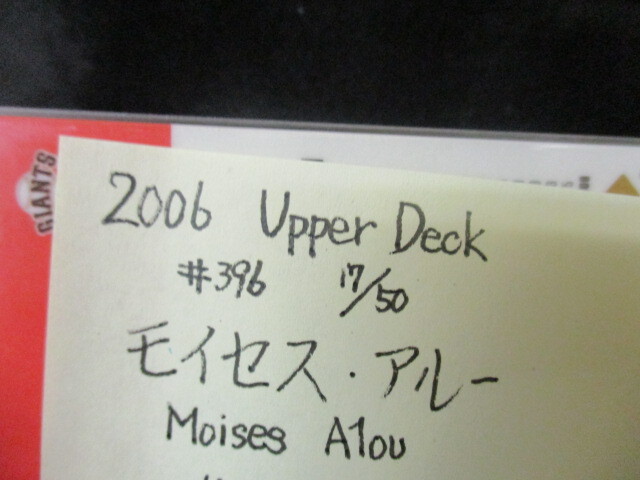 GIANTS
2006 Upper Deck
#396 17/50
モイセス・アルー
Moises Alou